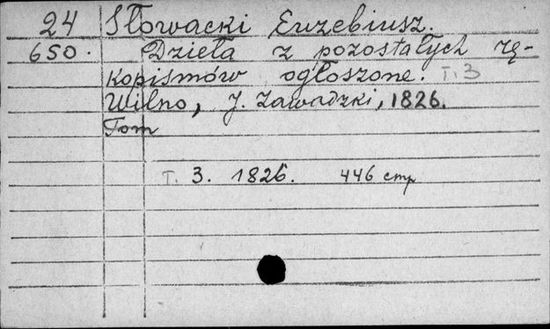 24 Słowacki Euzebiusz.
650. Dzieła z pozostałych rę-
kopismów ogłoszone. T. 3
Wilno, J. Zawadzki, 1826.
Tom
T. 3. 1826. 446 стр